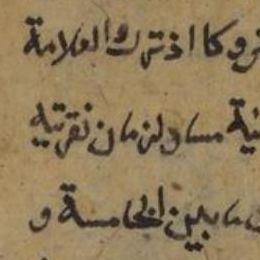 وكما اذ ترك العلامة
مساو لزمان نقرتيه
ما بين الخامسة و